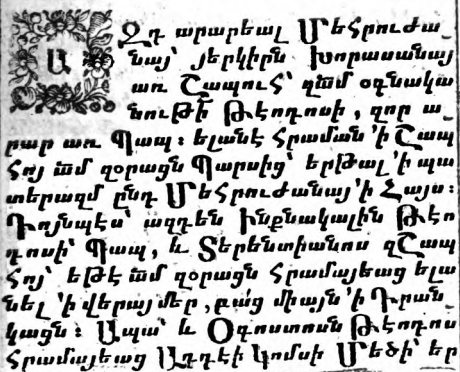 Ա
Զդ արարեալ Մեհրուժա
նայ՝ յերկիրն խորասանայ
առ Շապուհ՝ զա՟մ օգնակա
նութի Թէոդոսի, զոր ա-
րար առ Պապ։ ելանէ հրաման ՚ի Շապ
հոյ ա՟մ զօրացն Պարսից՝ երթալ ՚ի պա
տերազմ ընդ Մեհրուժանայ ՚ի Հայս։
Դոյնպէս՝ ազդեն ինքնակալին Թէո
դոսի՝ Պապ, և Տերենտիանոս զՇապ
հոյ՝ եթէ ա՟մ զօրացն հրամայեաց ելա
նել ՚ի վերայ մեր, բա՛ց միայն ՚ի Դրան
կացն։ Ապա՝ և Օգոստոսն Թէոդոս
հրամայեաց Ադդէի կոմսի Մեծի՝ եր